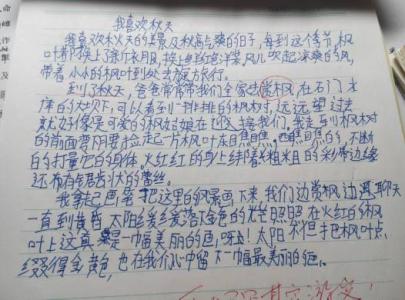 我喜欢秋天
我喜欢秋天的美景及秋高气爽的日子,每到这个季节,枫
叶都换上了新衣服,披上红红的洋装,风儿吹起凉爽的风,
带着小小的枫叶到处去旅行。
到了秋天,爸爸常常带我们全家去赏枫,在石门水
库的大坝下,可以看到一排排的枫树,远远望过去
就好像是可爱的枫姑娘在迎接我们,我走到枫树
的前面弯腰捡起一片枫叶东瞧瞧,西瞧瞧的不断
的打量它的身体,火红红的身上绑着粗粗的彩带边缘
还布有锯齿状的蕾丝。
我拿起画笔把这里的风景画下来我们边赏枫边聊天
一直到黄昏太阳缓缓落下金色的光芒照在火红的枫
叶上这真是一幅美丽的画,呀!太阳不但把枫叶点
缀得金黄色,也在我们心中留下一幅最美丽的画。